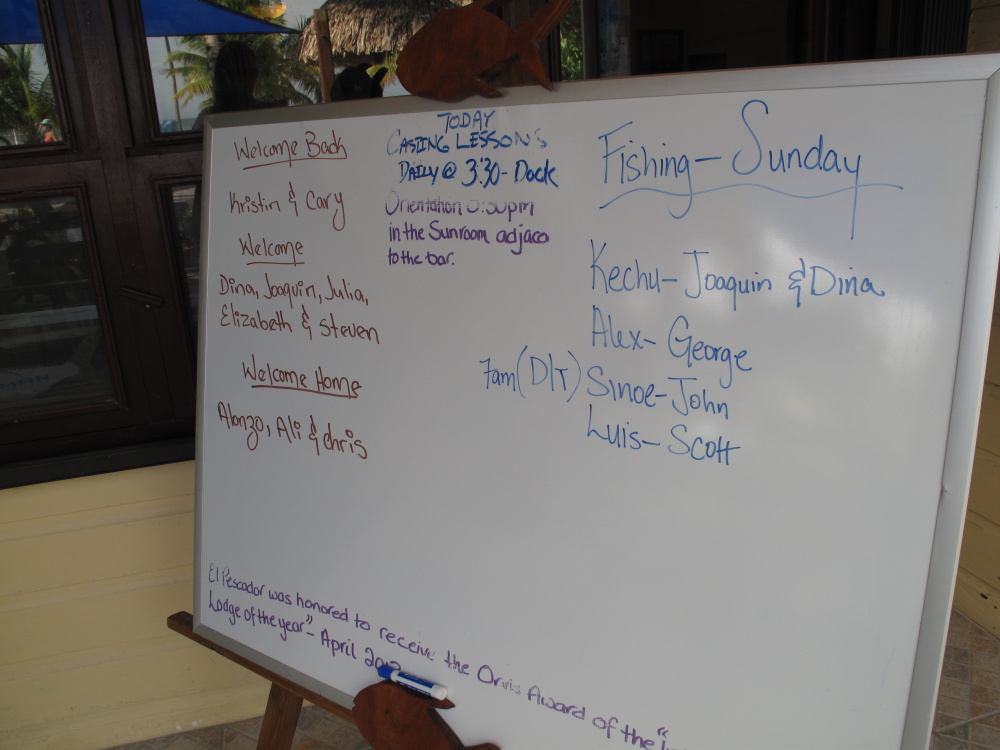 Welcome Back
Kristin & Cary
Welcome
Dina, Joaquin, Julia,
Elizabeth & Steven
Welcome Home
Alonzo, Ali & chris
TODAY
CASTING LESSON'S
DAILY @ 3:30- Dock
Orientation
in the Sunroom adjace
to the bar.
Fishing- Sunday
Kechu- Joaquin & Dina
Alex- George
7am (D/T) Sinoe- John
Luis- Scott
El Pescador was honored to receive the Orvis Award of the "
Lodge of the year" - April